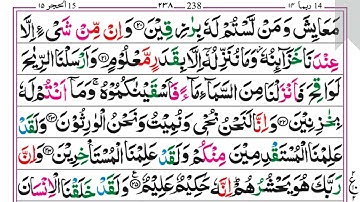 ١٤ ربما 14 ٢٣٨ 238 الحجر ١٥ 15
مَعَايِشَ وَمَنْ لَّسْتُمْ لَهٗ بِرٰزِقِيْنَ ﴿٢٠﴾ وَاِنْ مِّنْ شَىْءٍ اِلَّا
عِنْدَنَا خَزَآئِنُهٗ وَمَا نُنَزِّلُهٗٓ اِلَّا بِقَدَرٍ مَّعْلُوْمٍ ﴿٢١﴾ وَاَرْسَلْنَا الرِّيٰحَ
لَوَاقِحَ فَاَنْزَلْنَا مِنَ السَّمَآءِ مَآءً فَاَسْقَيْنٰكُمُوْهُ ۚ وَمَآ اَنْتُمْ لَهٗ
بِخٰزِنِيْنَ ﴿٢٢﴾ وَاِنَّا لَنَحْنُ نُحْيٖ وَنُمِيْتُ وَنَحْنُ الْوٰرِثُوْنَ ﴿٢٣﴾ وَلَقَدْ
عَلِمْنَا الْمُسْتَقْدِمِيْنَ مِنْكُمْ وَلَقَدْ عَلِمْنَا الْمُسْتَاْخِرِيْنَ ﴿٢٤﴾ وَاِنَّ
رَبَّكَ هُوَ يَحْشُرُهُمْ ؕ اِنَّهٗ حَكِيْمٌ عَلِيْمٌ ﴿٢٥﴾ وَلَقَدْ خَلَقْنَا الْاِنْسَانَ